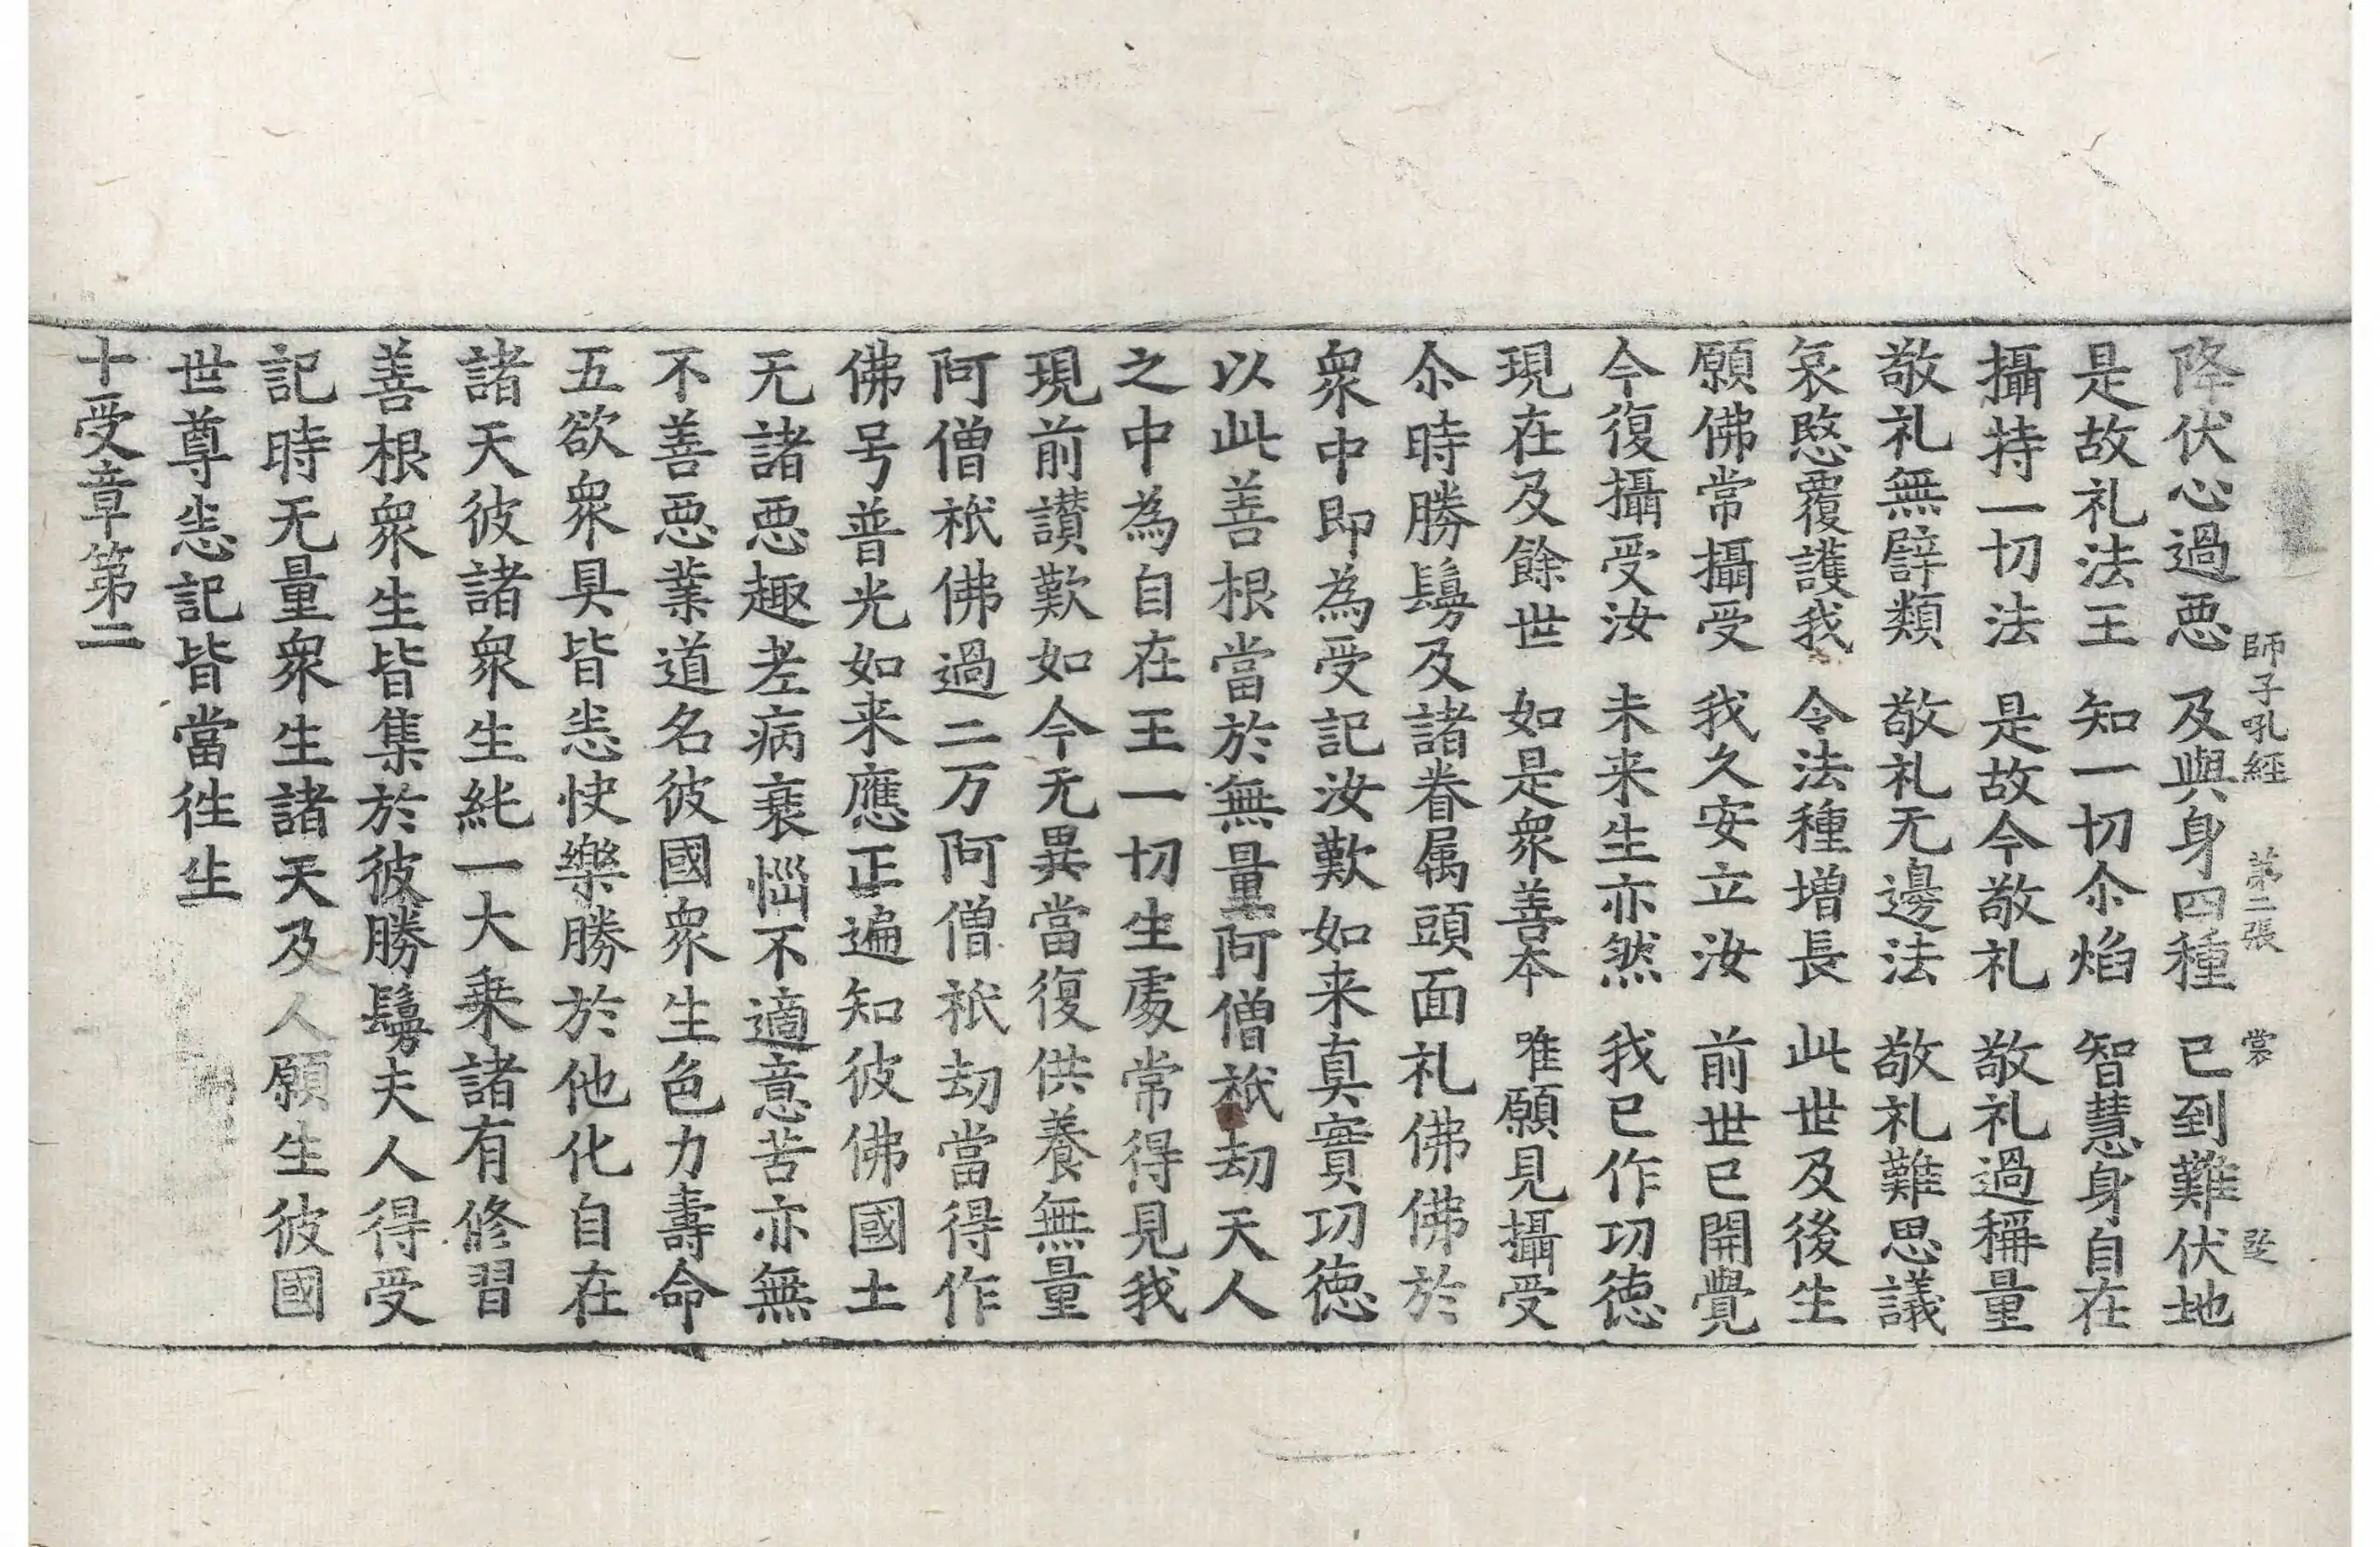 師子吼經 第二張 裳
降伏心過悪 及與身四種 已到難伏地
是故礼法王 知一切尒焰 智慧身自在
攝持一切法 是故今敬礼 敬礼過稱量
敬礼無譬類 敬礼无邊法 敬礼難思議
哀愍覆護我 令法種增長 此世及後生
願佛常攝受 我久安立汝 前世已開覺
今復攝受汝 未来生亦然 我已作功徳
現在及餘世 如是衆善夲 唯願見攝受
尒時勝鬘及諸眷属頭面礼佛佛於
衆中即為受記汝歎如来真實功徳
以此善根當於無量阿僧祇劫天人
之中為自在王一切生處常得見我
現前讃歎如今无異當復供養無量
阿僧祇佛過二万阿僧祇劫當得作
佛号普光如来應正遍知彼佛國土
无諸悪趣老病衰惱不適意苦亦無
不善悪業道名彼國衆生色力壽命
五欲衆具皆悉快樂勝於他化自在
諸天彼諸衆生純一大乗諸有修習
善根衆生皆集於彼勝鬘夫人得受
記時无量衆生諸天及人願生彼國
世尊悉記皆當往生
十受章第二